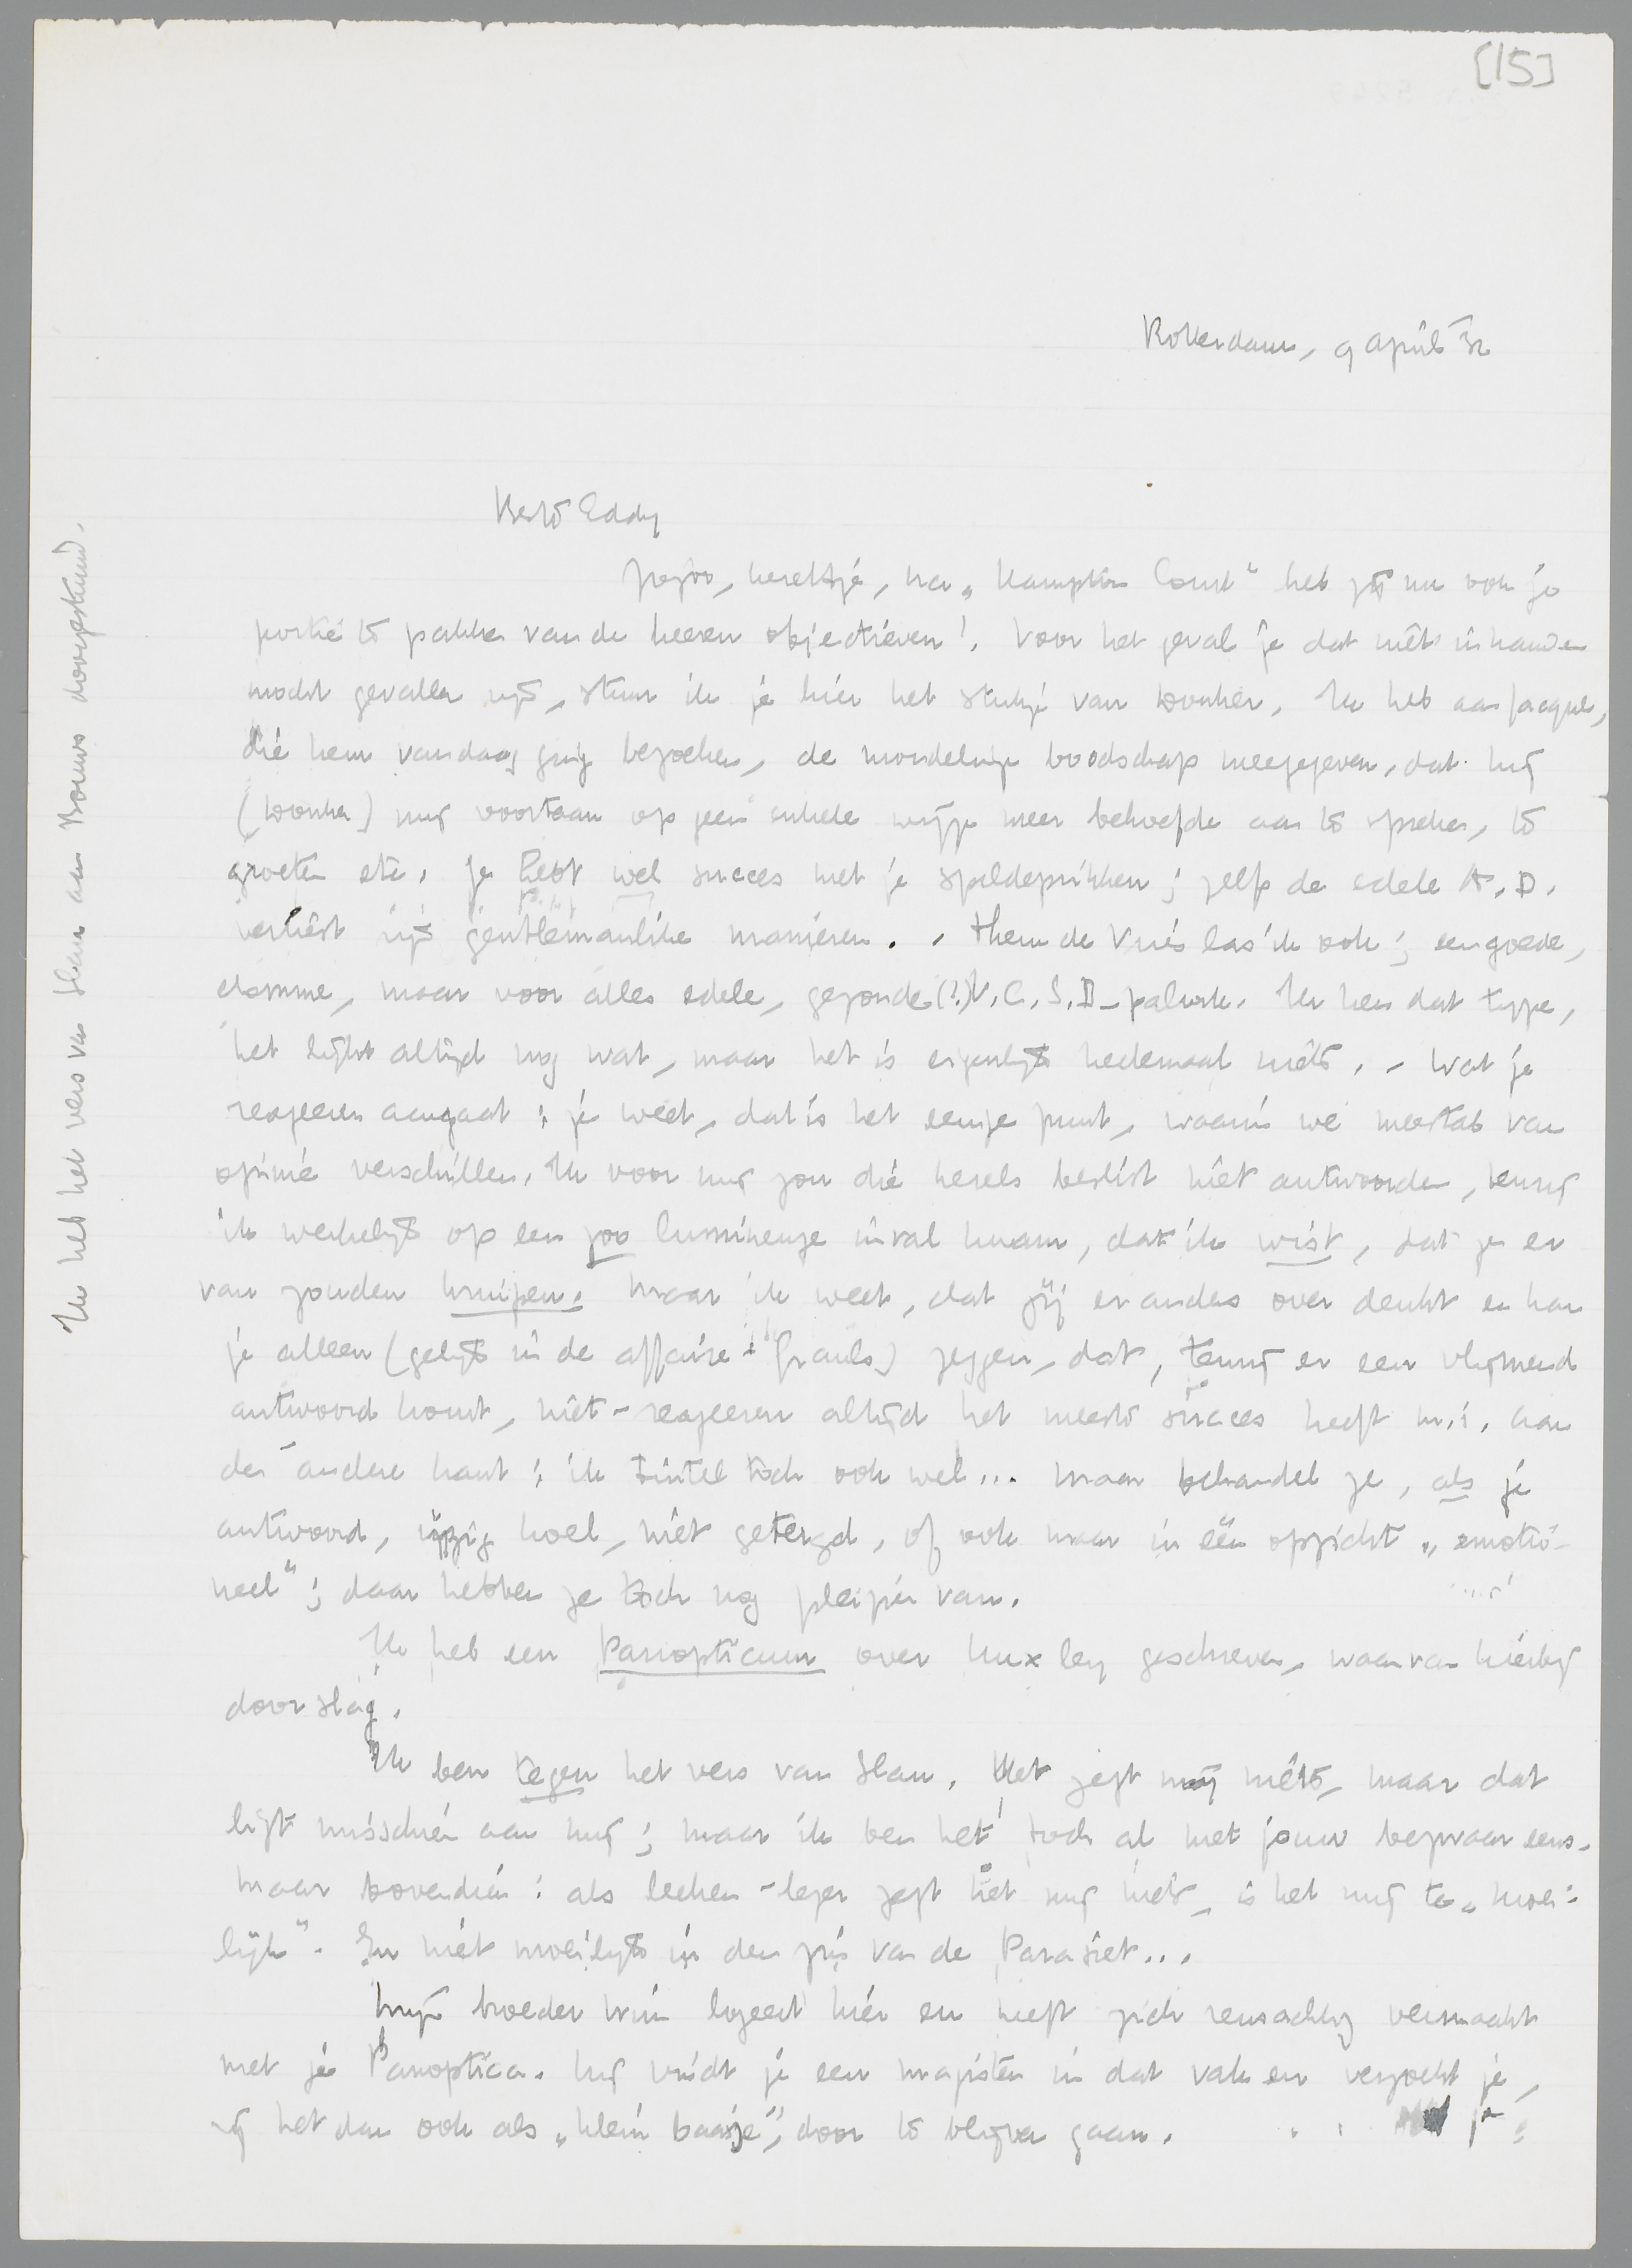 [15]
Rotterdam, 9 April '32
Beste Eddy
Jajaa, kereltje, na „Hampton Court" heb jij nu ook je
portie te pakken van de heeren objectieven! Voor het geval je dat niet in handen
mocht gevallen zijn, stuur ik je hier het stukje van Donker. Ik heb aan Jacques,
die hem vandaag ging bezoeken, de mondelinge boodschap meegegeven, dat hij
(Donker) mij voortaan op geen enkele wijze meer behoefde aan te spreken, te
groeten etc. Je hebt wel succes met je speldeprikken; zelfs de edele A.D.
verliest zijn gentlemanlike manieren. - Theun de Vries las ik ook; een goede,
domme, maar voor alles edele, gezonde (!) V.C.S.B-palurk. Ik ken dat type,
het lijkt altijd nog wat, maar het is eigenlijk heelemaal niets. - Wat je
reageeren aangaat: je weet, dat is het eenige punt, waarin we meestal van
opinie verschillen. Ik voor mij zou die kerels beslist niet antwoorden, tenzij
ik werkelijk op een zoo lumineuze inval kwam, dat ik wist, dat ze er
van zouden kruipen. Maar ik weet, dat jij er anders over denkt en kan
je alleen (gelijk in de affaire-Greshoff) zeggen, dat, tenzij er een vlijmend
antwoord komt, niet-reageeren altijd het meeste succes heeft m.i. Aan
den anderen kant: ik tintel toch ook wel... Maar behandel ze, als je
antwoord, ijzig koel, niet getergd, of ook maar in één opzicht „emotio-
neel"; daar hebben ze toch nog plezier van.
Ik heb een Panopticum over Huxley geschreven, waarvan hierbij
doorslag.
Ik ben tegen het vers van Slau. Het zegt mij niets, maar dat
ligt misschien aan mij; maar ik ben het toch al met jouw bezwaar eens.
Maar bovendien: als leeken-lezer zegt het mij niets, is het mij te „moei-
lijk". En niet moeilijk in den zin van de Parasiet...
Mijn broeder Wim logeert hier en heeft zich reusachtig vermaakt
met je Panoptica. Hij vindt je een magister in dat vak en verzoekt je,
zij het dan ook als „klein baasje", door te blijven gaan.
Ik heb het vers van Slau aan Bouws doorgestuurd.